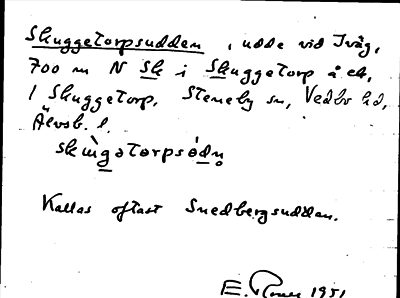 Skuggetorpsudden, udde vid Iväg,
700 m N Sk i Skuggetorp å ek,
1 Skuggetorp, Steneby sn, Vedbo hd,
Älvsb. l.
skùgətɔrpsódn̥
Kallas oftast Snedbergsudden.
E. 1951